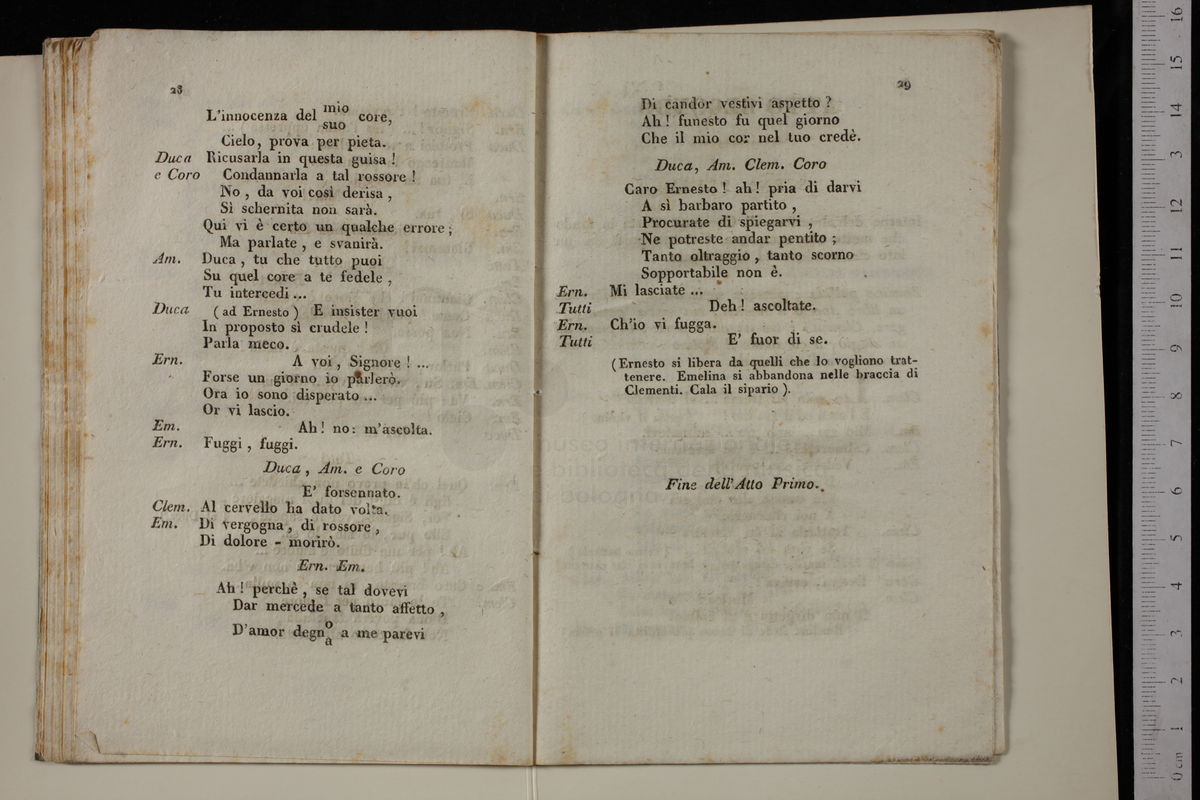 28
L'innocenza del mio/suo core,
Cielo, prova per pieta.
Duca Ricusarla in questa guisa !
e Coro Condannarla a tal rossore !
No , da voi così derisa ,
Sì schernita non sarà.
Qui vi è certo un qualche errore ;
Ma parlate , e svanirà.
Am. Duca , tu che tutto puoi
Su quel core a te fedele ,
Tu intercedi ...
Duca ( ad Ernesto ) E insister vuoi
In proposto sì crudele !
Parla meco.
Ern. A voi , Signore ! ...
Forse un giorno io parlerò.
Ora io sono disperato ...
Or vi lascio.
Em. Ah ! no : m'ascolta.
Ern. Fuggi , fuggi.
Duca , Am. e Coro
E' forsennato.
Clem. Al cervello ha dato volta.
Em. Di vergogna , di rossore ,
Di dolore - morirò.
Ern. Em.
Ah ! perchè , se tal dovevi
Dar mercede a tanto affetto ,
D'amor degno/a a me parevi
29
Di candor vestivi aspetto ?
Ah ! funesto fu quel giorno
Che il mio cor nel tuo credè.
Duca, Am. Clem. Coro
Caro Ernesto ! ah ! pria di darvi
A sì barbaro partito ,
Procurate di spiegarvi ,
Ne potreste andar pentito ;
Tanto oltraggio , tanto scorno
Sopportabile non è.
Ern. Mi lasciate ...
Tutti Deh ! ascoltate.
Ern. Ch'io vi fugga.
Tutti E' fuor di se.
(Ernesto si libera da quelli che lo vogliono trat-
tenere. Emelina si abbandona nelle braccia di
Clementi. Cala il sipario ).
Fine dell'Atto Primo.
museo internazionale
e biblioteca della musica
di bologna
0 cm 1 2 3 4 5 6 7 8 9 10 11 12 13 14 15 16